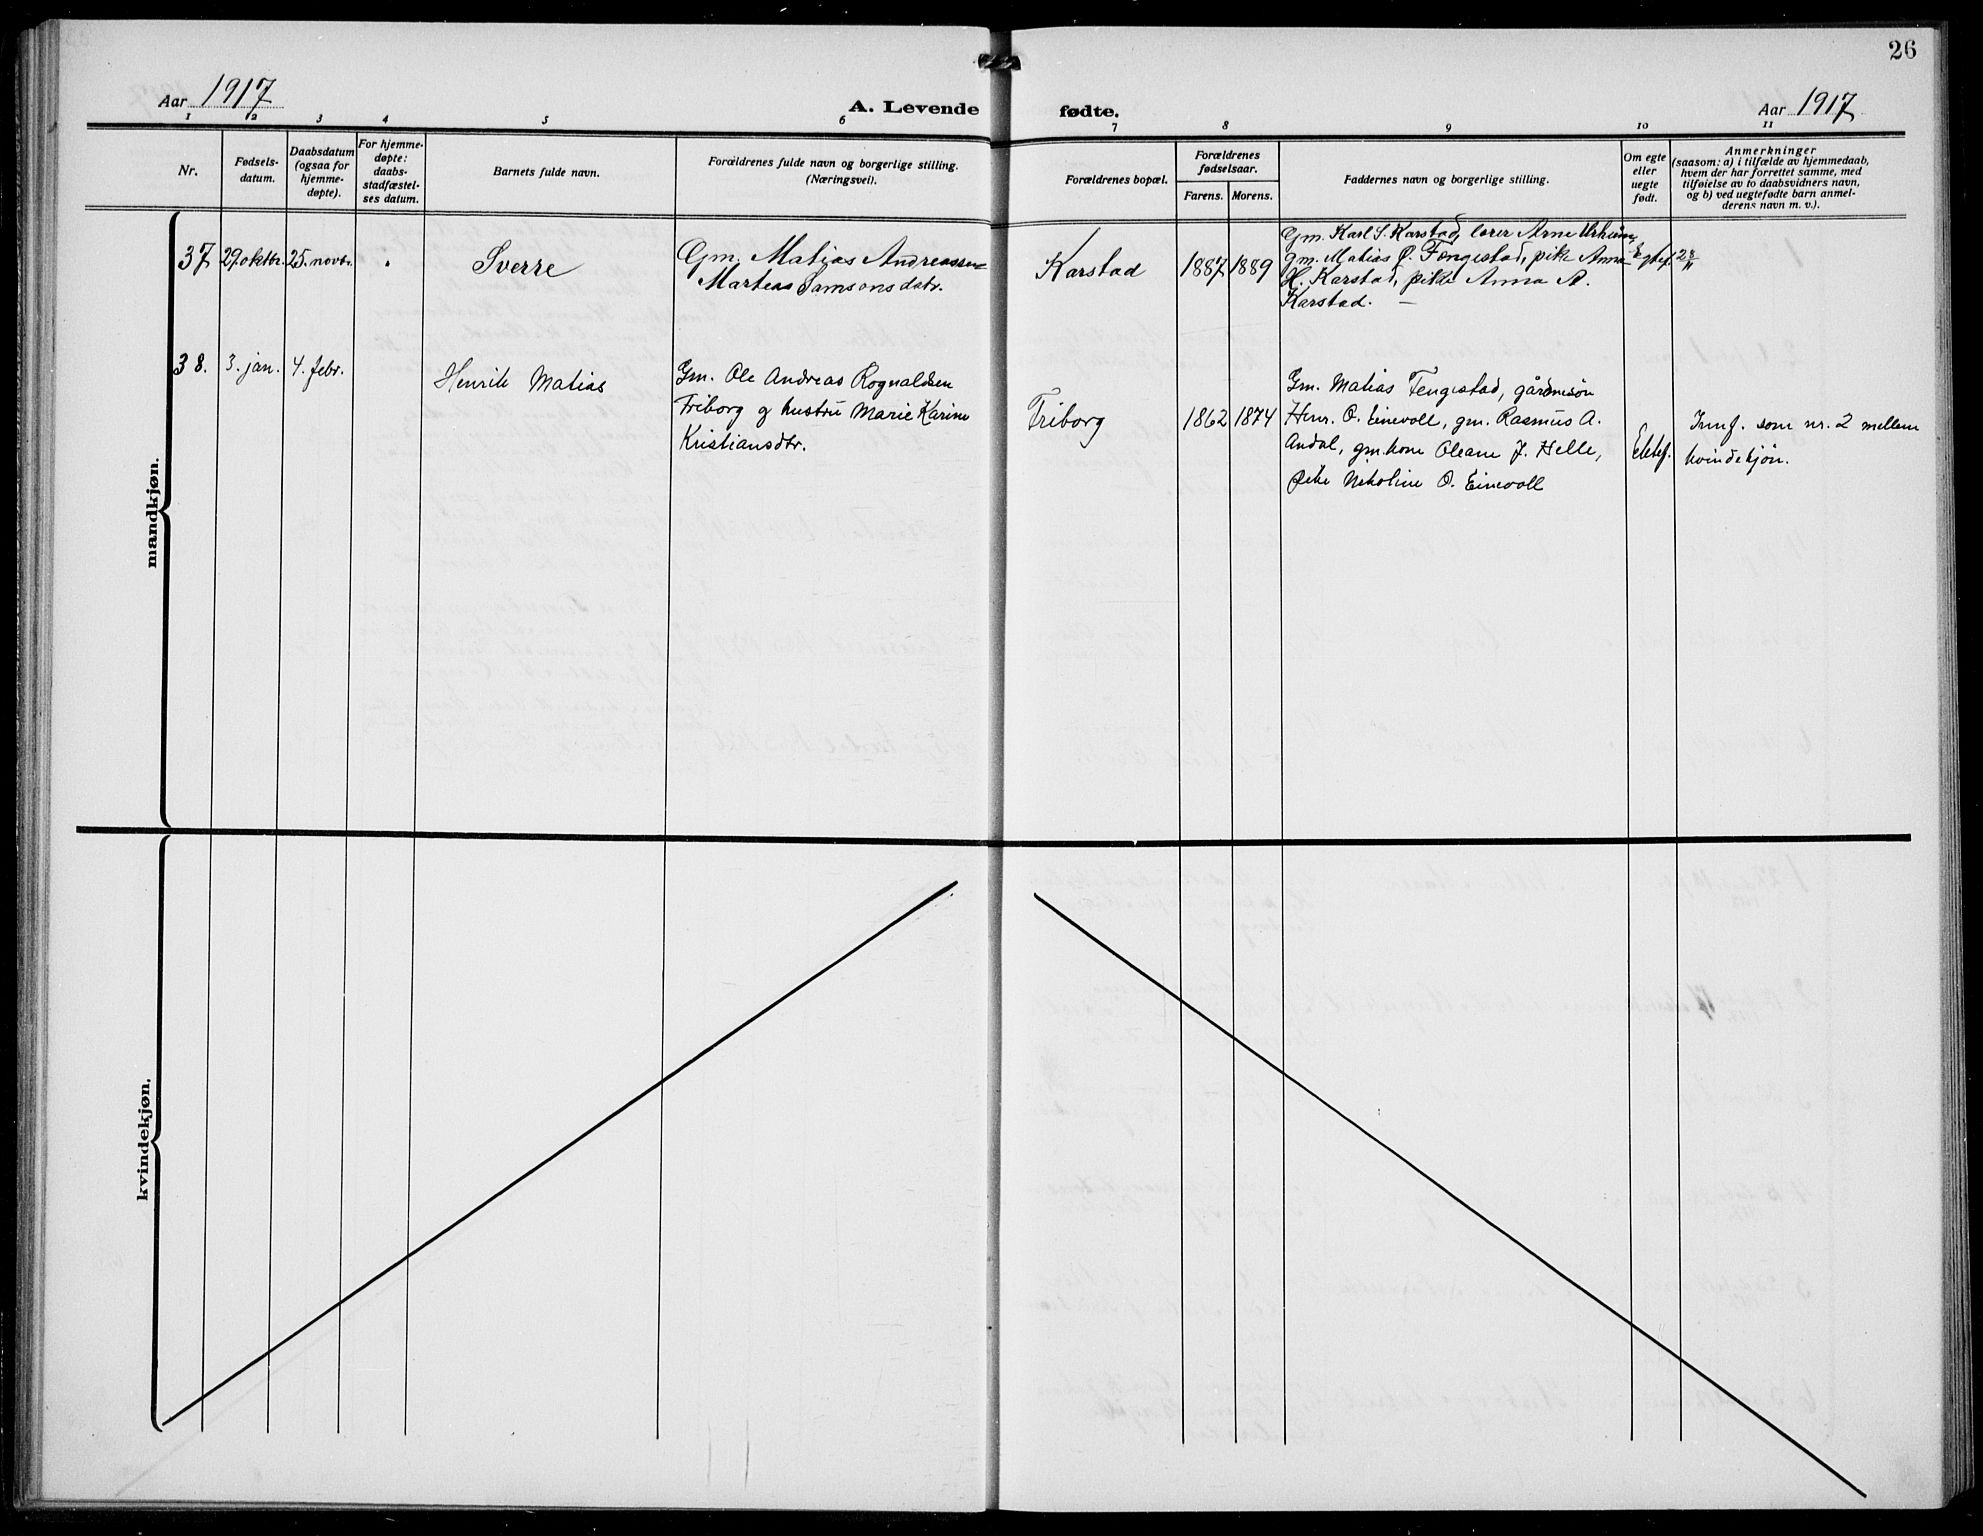 26
Aar 1917
A. Levende fødte.
Aar 1917
1 2 3 4 5 6 7 8 9 10 11
Nr.
Fødsels-
datum.
Daabsdatum
(ogsaa for
hjemme-
døpte).
For hjemme-
døpte:
daabs-
stadfæstel-
ses datum.
Barnets fulde navn.
Forældrenes fulde navn og borgerlige stilling.
(Næringsvei).
Forældrenes bopæl.
Forældrenes
fødselsaar.
Farens. Morens.
Faddernes navn og borgerlige stilling.
Om egte
eller
uegte
født.
Anmerkninger
(saasom: a) i tilfælde av hjemmedaab,
hvem der har forrettet samme, med
tilføielse av to daabsvidners navn,
og b) ved uegtefødte barn anmel-
derens navn m. v.).
mandkjøn.
37 29. oktbr. 25. novbr. Sverre
Gm. Matias Andreassen
Martea Samsonsdatr.
Karstad 1887 1889
Gm. Karl S. Karstad, lærer Arne
gm. Matias O. Fengestad, pike Anna
H. Karstad, pike Anna A.
Karstad. —
Egtef. 28/11
38. 3. jan. 4. febr. Henrik Matias
Gm. Ole Andreas Rognaldsen
Friborg og hustru Marie Karine
Kristiansdtr.
Friborg 1862 1874
Gm. Matias Fengestad, gårdmsøn
Henr. O. Einevoll, gm. Rasmus A.
Andal, gm.kone Oleane J. Helle,
pike Nikoline O. Einevoll
Ektef.
Innf. som nr. 2 mellem
kvindekjøn.
kvindekjøn.